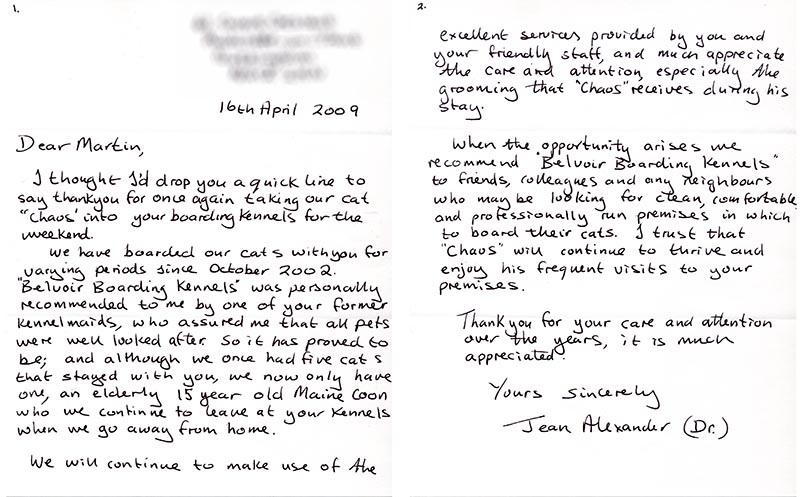 1.
16th April 2009
Dear Martin,
I thought I'd drop you a quick line to
say thankyou for once again taking our cat
"Chaos' into your boarding Kennels for the
weekend.
We have boarded our cats with you for
varying periods since October 2002.
"Belvoir Boarding Kennels" was personally
recommended to me by one of your former
Kennelmaids, who assured me that all pets
were well looked after. So it has proved to
be; and although we once had five cats
that stayed with you, we now only have
one, an elderly 15 year old Maine Coon
who we continue to leave at your Kennels
when we go away from home.
We will continue to make use of the
2.
excellent services provided by you and
your friendly staff, and much appreciate
the care and attention, especially the
grooming that "Chaos" receives during his
stay.
When the opportunity arises we
recommend "Belvoir Boarding Kennels"
to friends, colleagues and any neighbours
who may be looking for clean, comfortable
and professionally run premises in which
to board their cats. I trust that
"Chaos" will continue to thrive and
enjoy his frequent visits to your
premises.
Thankyou for your care and attention
over the years, it is much
appreciated.
Yours sincerely
Jean Alexander (Dr.)